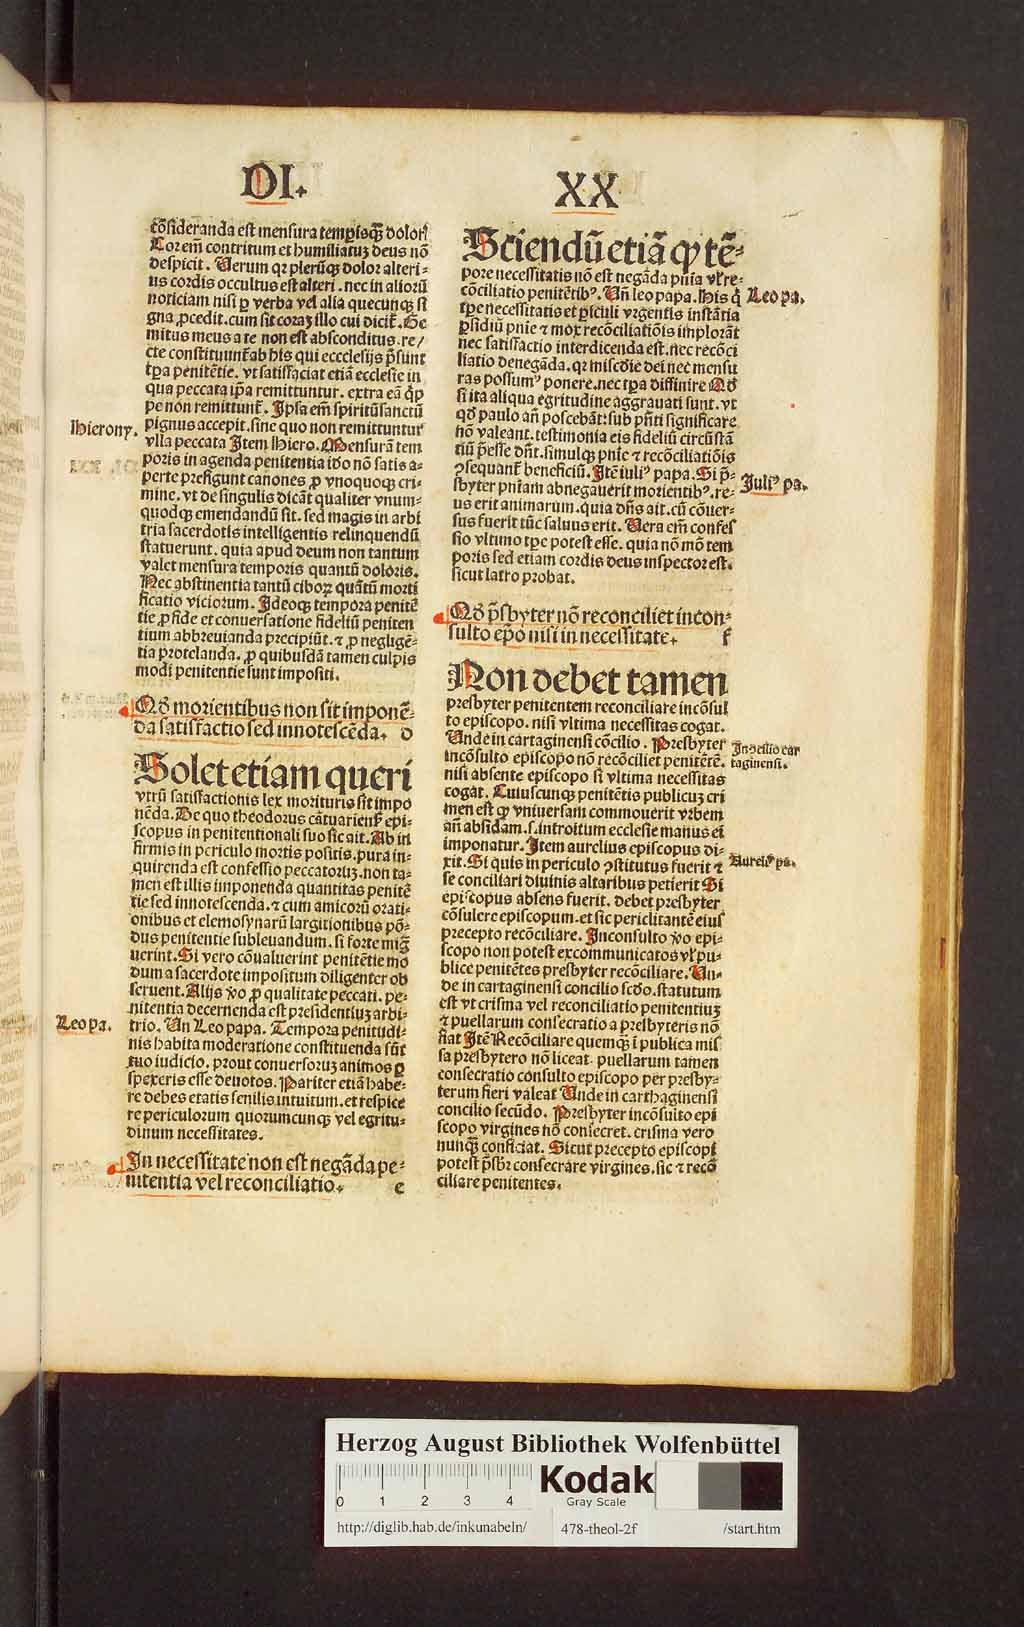 DI.
XX
cõsideranda est mensura temporisq̃ dolor
Cor em̃ contritum et humiliatuȝ deus nõ
despicit. Uerum qꝛ plerũqȝ dolor alteri⸗
us cordis occultus est alteri. nec in alioꝛũ
noticiam nisi ꝑ verba vel alia quecunqȝ si
gna ꝓcedit. cum sit coraȝ illo cui dicit̃. Ge
mitus meus a te non est absconditus. re/
cte constituunt̃ ab his qui eccclesijs p̃sunt
tp̃a penitẽtie. vt satisfaciat etiã ecclesie in
qua peccata ip̃a remittuntur. extra eã q̃p
pe non remittunt̃. Ipsa em̃ spiritũ sanctũ
pignus accepit. sine quo non remittuntur
vlla peccata Item Hiero. Mensurã tem
poris in agenda penitentia iðo nõ satis a⸗
perte prefigunt canones ꝓ vnoquoqȝ cri⸗
mine. vt de singulis dicãt qualiter vnum⸗
quodqȝ emendandũ sit. sed magis in arbi
tria sacerdotis intelligentis relinquendũ
statuerunt. quia apud deum non tantum
valet mensura temporis quantũ doloris.
Nec abstinentia tantũ ciboꝝ quãtũ morti
ficatio viciorum. Ideoqȝ tempora penitẽ
tie ꝓ fide et conuersatione fideliũ peniten
tium abbreuianda precipiũt. ⁊ ꝓ negligẽ⸗
tia protelanda. ꝓ quibusdã tamen culpis
modi penitentie sunt impositi.
Hierony.
Qð morientibus non sit imponẽ⸗
da satisfactio sed innotescẽda. d
Solet etiam queri
vtrũ satisfactionis lex morituris sit impo
nẽda. De quo theodorus cãtuarieñ epi⸗
scopus in penitentionali suo sic ait. Ab in
firmis in periculo mortis positis. pura in⸗
quirenda est confessio peccatoruȝ. non ta⸗
men est illis imponenda quantitas penitẽ
tie sed innotescenda. ⁊ cum amicorũ orati⸗
onibus et elemosynarũ largitionibus põ⸗
dus penitentie subleuandum. si forte mig̃
uerint. Si vero cõualuerint penitẽtie mo
dum a sacerdote impositum diligenter ob
seruent. Alijs v̊o ꝓ qualitate peccati. pe⸗
nitentia decernenda est presidentiuȝ arbi⸗
trio. Uñ Leo papa. Tempora penitudi⸗
nis habita moderatione constituenda sũt
tuo iudicio. prout conuersoruȝ animos ꝑ
spexeris esse deuotos. Pariter etiã habe⸗
re debes etatis senilis intuitum. et respice
re periculorum quorumcunqȝ vel egritu⸗
dinum necessitates.
Leo pa.
In necessitate non est negãda pe⸗
nitentia vel reconciliatio. e
Sciendũ etiã ꝙ tẽ⸗
pore necessitatis nõ est negãda pñia vl̃ re⸗
cõciliatio penitẽtibꝰ. Uñ leo papa. His q̃
tp̃e necessitatis et ꝑiculi vrgentis instãtia
p̃sidiũ pnie ⁊ mox recõciliatiõis implorãt
nec satisfactio interdicenda est. nec recõci
liatio denegãda. qꝛ miscðie dei nec mensu
ras possumꝰ ponere. nec tp̃a diffinire Qð
si ita aliqua egritudine aggrauati sunt. vt
qð paulo añ poscebãt: sub p̃nti significare
nõ valeant. testimonia eis fideliũ circũstã
tiũ p̃esse dñt. simulqȝ pnie ⁊ recõciliatiõis
ꝯsequant̃ beneficiũ. Itẽ iuliꝰ papa. Si p̃⸗
sbyter pñiam abnegauerit morientibꝰ. re⸗
us erit animarum. quia dñs ait. cũ cõuer⸗
sus fuerit tũc saluus erit. Uera em̃ confes
sio vltimo tp̃e potest esse. quia nõ mõ tem
poris sed etiam cordis deus inspector est.
sicut latro probat.
Leo pa.
Juliꝰ pa.
Qð p̃sbyter nõ reconciliet incon⸗
sulto ep̃o nisi in necessitate. f
Non debet tamen
presbyter penitentem reconciliare incõsul
to episcopo. nisi vltima necessitas cogat.
Unde in cartaginensi cõcilio. Presbyter
incõsulto episcopo nõ recõciliet penitẽtẽ.
nisi absente episcopo si vltima necessitas
cogat. Cuiuscunqȝ penitẽtis publicuȝ cri
men est ꝙ vniuersam commouerit vrbem
añ absidam .s. introitum ecclesie manus ei
imponatur. Item aurelius episcopus di⸗
xit. Si quis in periculo ꝯstitutus fuerit ⁊
se conciliari diuinis altaribus petierit Si
episcopus absens fuerit. debet presbyter
cõsulere episcopum. et sic periclitantẽ eius
precepto recõciliare. Inconsulto v̊o epi⸗
scopo non potest excommunicatos vl̃ pu⸗
blice penitẽtes presbyter recõciliare. Un⸗
de in cartaginensi concilio scðo. statutum
est vt crisma vel reconciliatio penitentiuȝ
⁊ puellarum consecratio a presbyteris nõ
fiat Itẽ Recõciliare quemqȝ ĩ publica mis
sa presbytero nõ liceat. puellarum tamen
consecratio consulto episcopo per presby⸗
terum fieri valeat Unde in carthaginensi
concilio secũdo. Presbyter incõsulto epi
scopo virgines nõ consecret. crisma vero
nunqȝ conficiat. Sicut precepto episcopi
potest p̃sbr̃ consecrare virgines. sic ⁊ recõ
ciliare penitentes.
In ꝯcilio car
taginensi.
Aureliꝰ pa.
Herzog August Bibliothek Wolfenbüttel
0 1 2 3 4
Kodak
Gray Scale
http://diglib.hab.de/inkunabeln/ 478-theol-2f /start.htm